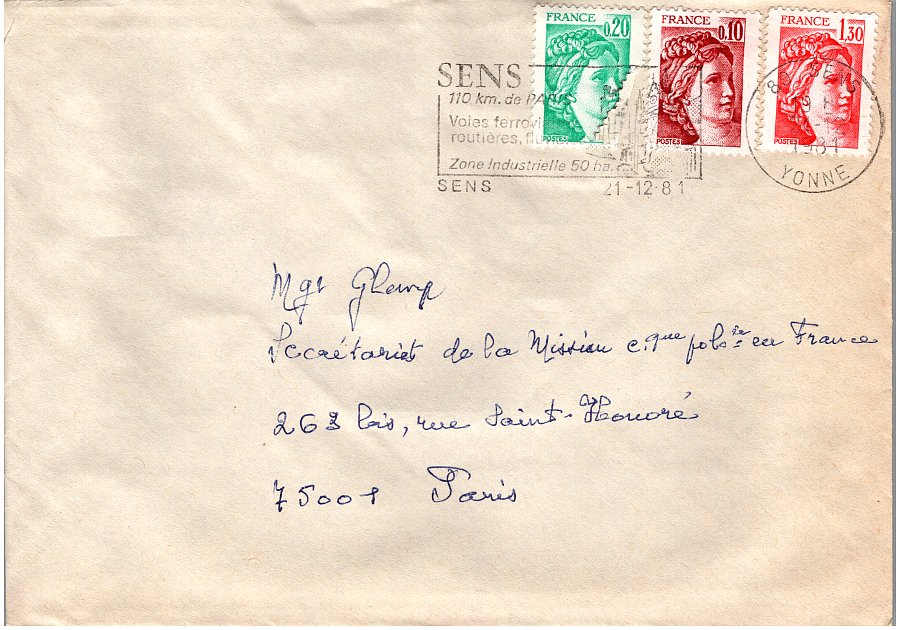 FRANCE 0,20 POSTES
FRANCE 0,10 POSTES
FRANCE 1,30 POSTES
SENS
110 km. de PARIS
Voies ferrovi
routières, fluvi
Zone Industrielle 50 ha.
SENS 21-12-81
89 SENS
1981
YONNE
Mgr Glamp
Secrétariat de la Mission c.que polse en France
263 bis, rue Saint-Honoré
75001 Paris